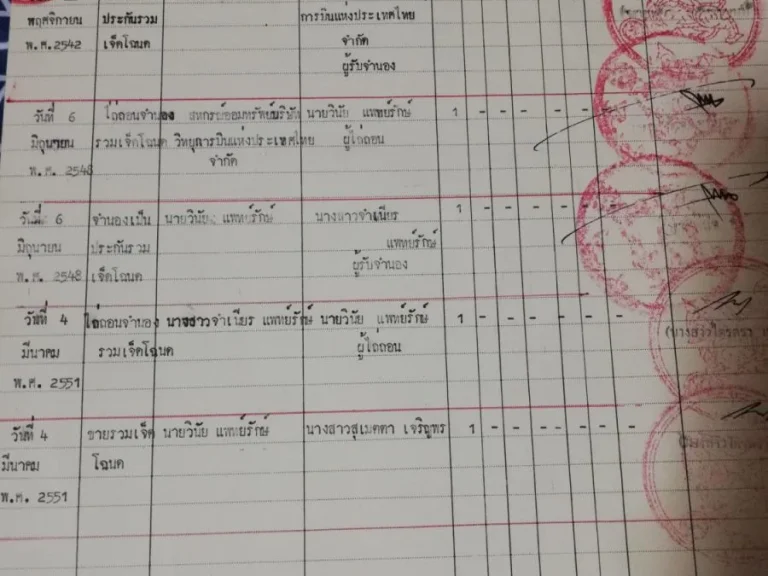 พฤศจิกายน ประกันรวม การบินแห่งประเทศไทย
พ.ศ.2542 เจ็ดโฉนด จำกัด
ผู้รับจำนอง
วันที่ 6 ไถ่ถอนจำนอง สหกรณ์ออมทรัพย์บริษัท นายวินัย แพทย์รักษ์ 1 - - - - -
มิถุนายน รวมเจ็ดโฉนด วิทยุการบินแห่งประเทศไทย ผู้ไถ่ถอน
พ.ศ. 2548 จำกัด
วันที่ 6 จำนองเป็น นายวินัย แพทย์รักษ์ นางสาวจำเนียร 1 - - - - -
มิถุนายน ประกันรวม แพทย์รักษ์
พ.ศ. 2548 เจ็ดโฉนด ผู้รับจำนอง
วันที่ 4 ไถ่ถอนจำนอง นางสาวจำเนียร แพทย์รักษ์ นายวินัย แพทย์รักษ์ 1 - - - - - -
มีนาคม รวมเจ็ดโฉนด ผู้ไถ่ถอน
พ.ศ. 2551
วันที่ 4 ขายรวมเจ็ด นายวินัย แพทย์รักษ์ นางสาวสุเมตตา เจริญพร 1 - - - - - -
มีนาคม โฉนด
พ.ศ. 2551